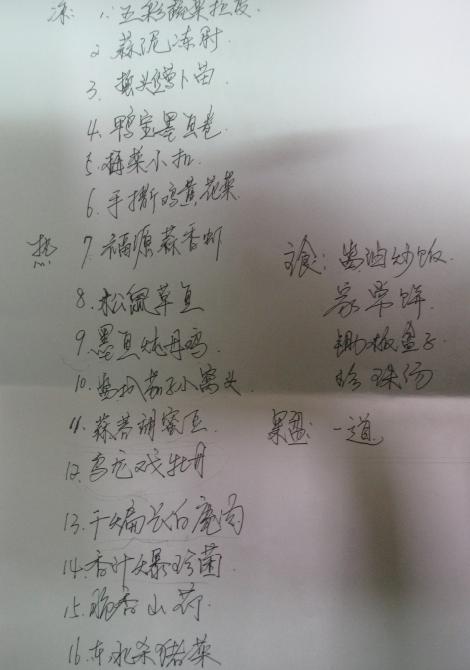 凉: 1. 五彩蔬菜拉皮
2. 蒜泥冻肘
3. 萝卜苗.
4. 鸭宝墨鱼卷.
5. 梅菜小扣.
6. 手撕鸡黄花菜
热 7. 福源蒜香虾
8. 松鼠草鱼
9. 墨鱼炖母鸡.
10. 茄子小窝头
11. 蒜蓉
12. 乌龙戏牡丹
13. 干煸长白鹿肉
14. 香叶爆珍菌
15. 脆香山药.
16. 东北杀猪菜
主食: 酱油炒饭.
家常饼.
盒子
珍珠汤
果盘: 一道